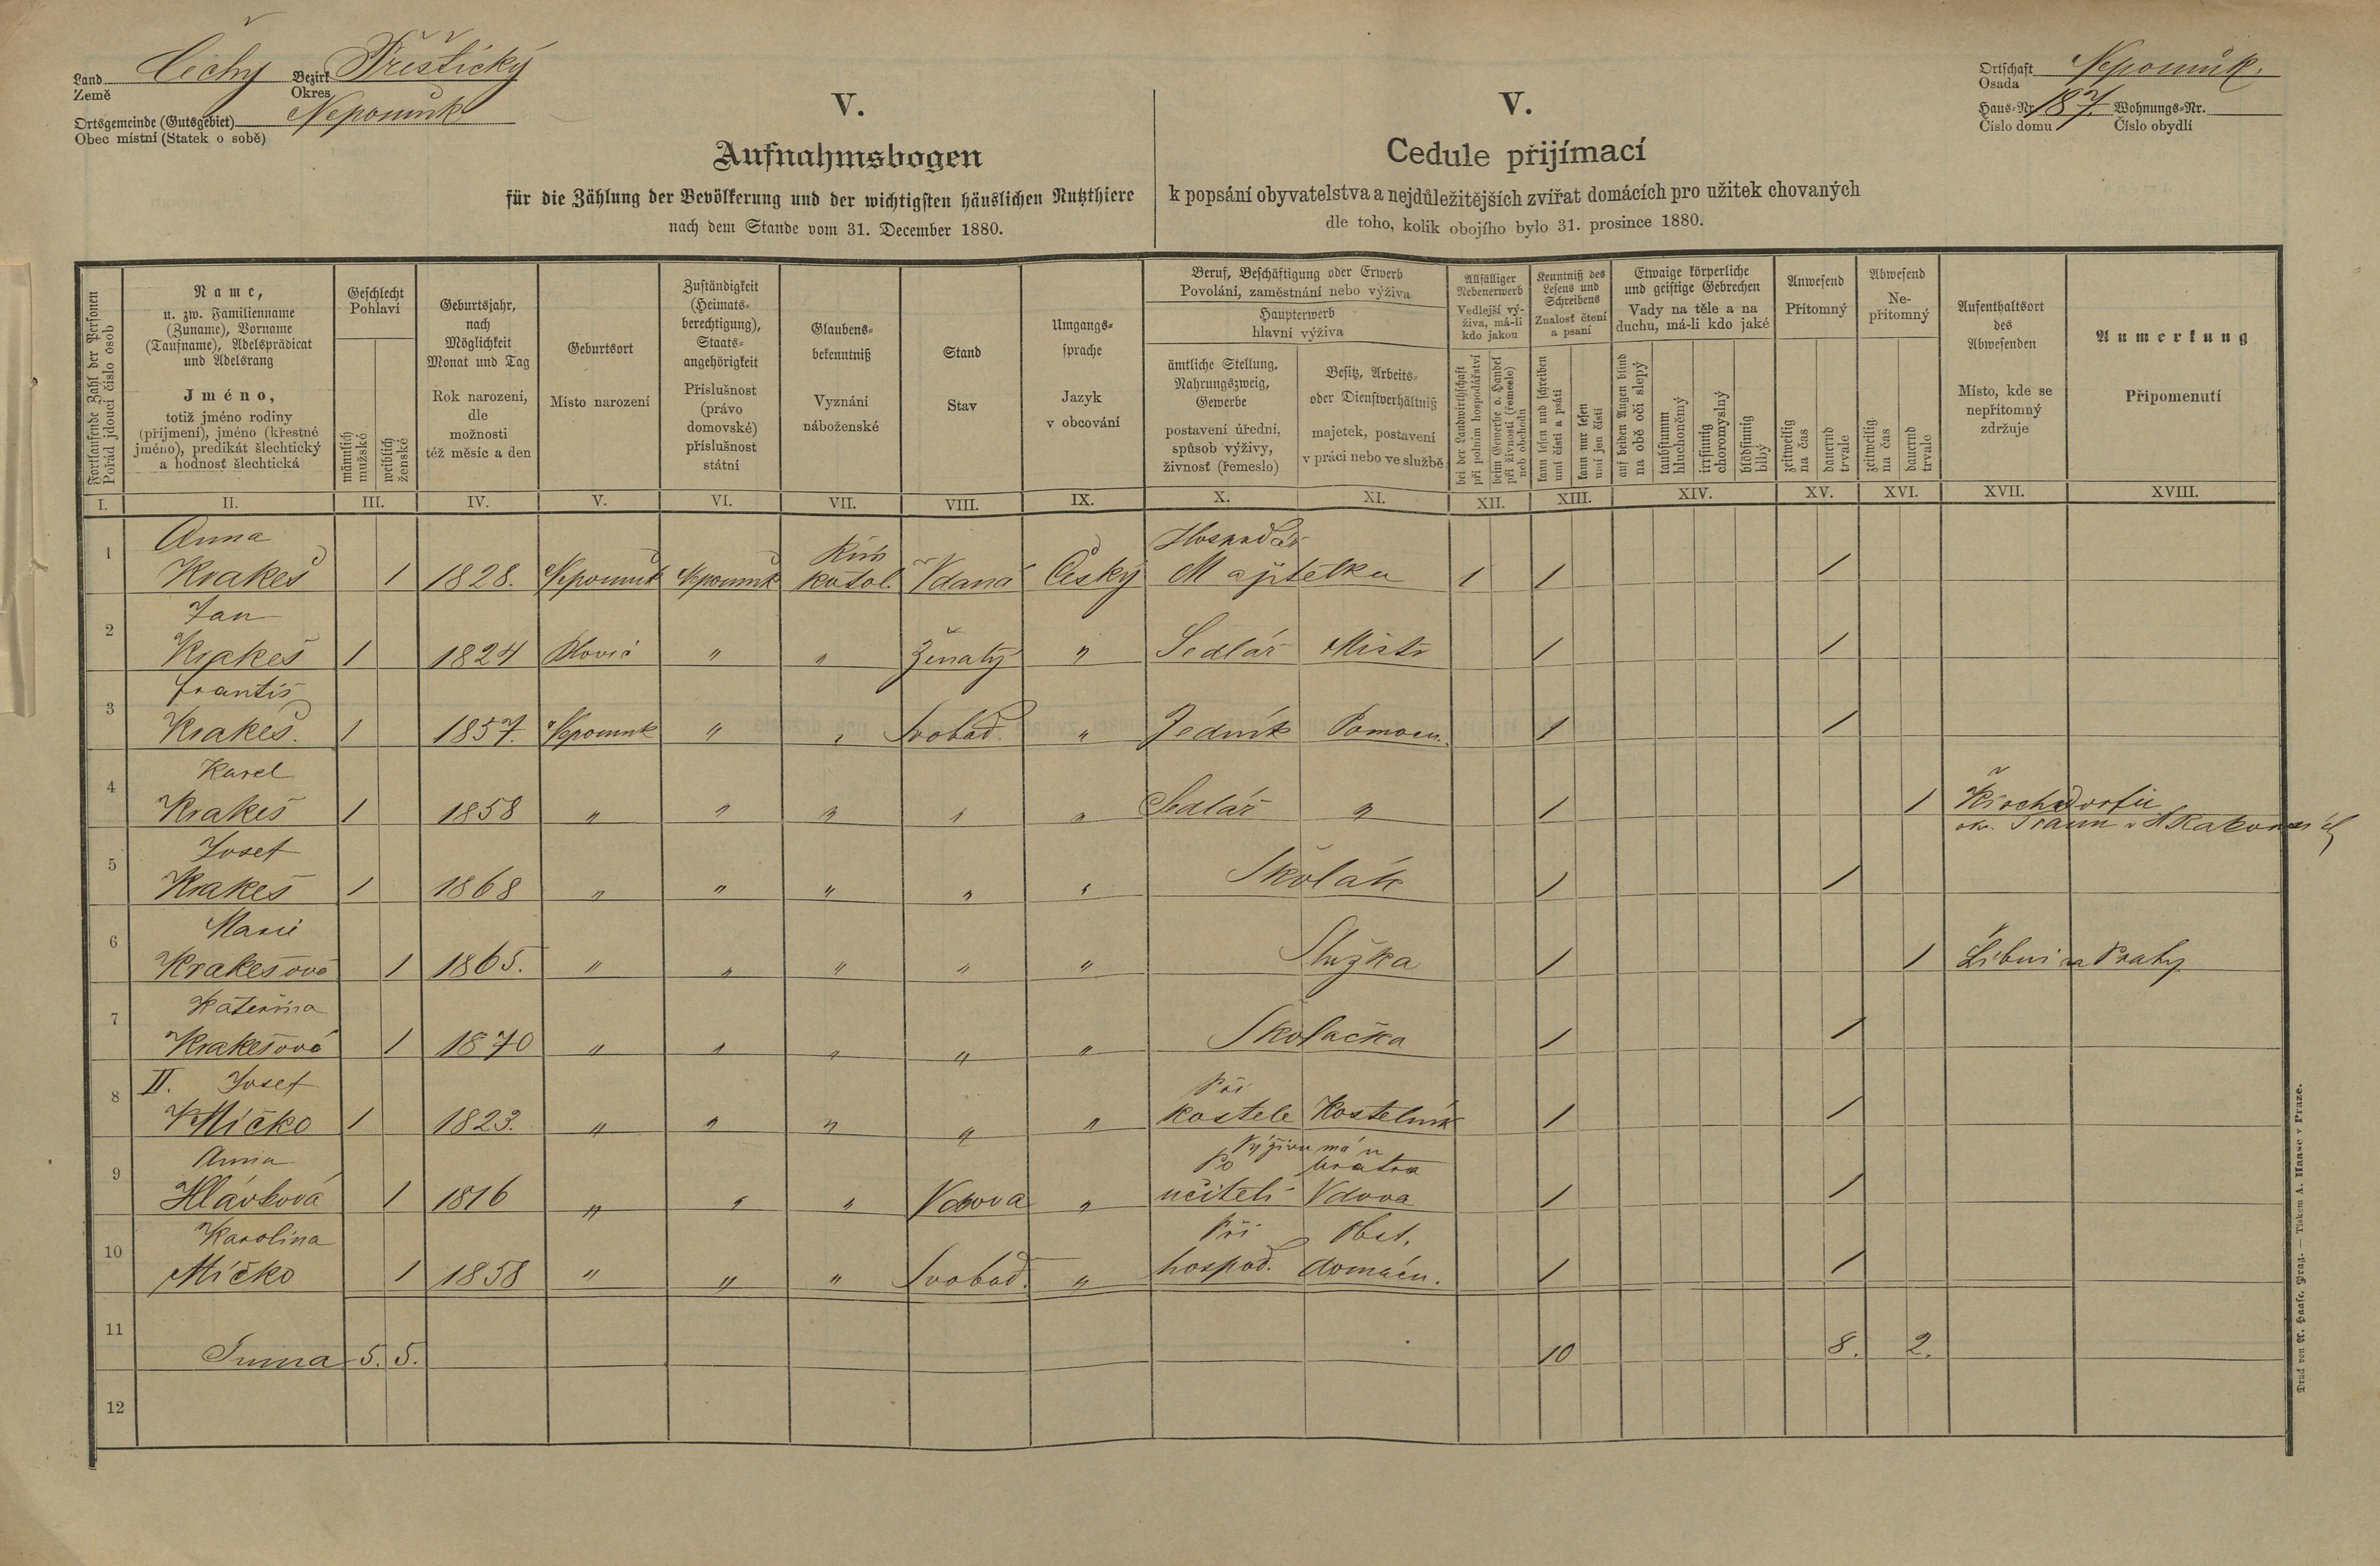 Land Čechy Bezirk Přestický
Země Okres
Ortsgemeinde (Gutsgebiet) Nepomuk
Obec místní (Statek o sobě)
Ortschaft Nepomuk.
Osada
Haus-Nr. 187. Wohnungs-Nr.
Číslo domu Číslo obydlí
V.
Aufnahmsbogen
für die Zählung der Bevölkerung und der wichtigsten häuslichen Nutzthiere
nach dem Stande vom 31. December 1880.
V.
Cedule přijímací
k popsání obyvatelstva a nejdůležitějších zvířat domácích pro užitek chovaných
dle toho, kolik obojího bylo 31. prosince 1880.
Fortlaufende Zahl der Personen
Pořád jdoucí číslo osob
Name,
u. zw. Familienname
(Zuname), Vorname
(Taufname), Adelsprädicat
und Adelsrang
Jméno,
totiž jméno rodiny
(příjmení), jméno (křestné
jméno), predikát šlechtický
a hodnosť šlechtická
Geschlecht
Pohlaví
männlich
mužské
weiblich
ženské
Geburtsjahr,
nach
Möglichkeit
Monat und Tag
Rok narození,
dle
možnosti
též měsíc a den
Geburtsort
Místo narození
Zuständigkeit
(Heimats-
berechtigung),
Staats-
angehörigkeit
Příslušnost
(právo
domovské)
příslušnost
státní
Glaubens-
bekenntniß
Vyznání
náboženské
Stand
Stav
Umgangs-
sprache
Jazyk
v obcování
Beruf, Beschäftigung oder Erwerb
Povolání, zaměstnání nebo výživa
Haupterwerb
hlavní výživa
ämtliche Stellung,
Nahrungszweig,
Gewerbe
postavení úřední,
spůsob výživy,
živnosť (řemeslo)
Besitz, Arbeits-
oder Dienstverhältniß
majetek, postavení
v práci nebo ve službě
Allfälliger
Nebenerwerb
Vedlejší vý-
živa, má-li
kdo jakou
bei der Landwirthschaft
při polním hospodářství
beim Gewerbe o. Handel
při živnosti (řemesle)
neb obchodu
Kenntniß des
Lesens und
Schreibens
Znalosť čtení
a psaní
kann lesen und schreiben
umí čísti a psáti
kann nur lesen
umí jen čísti
Etwaige körperliche
und geistige Gebrechen
Vady na těle a na
duchu, má-li kdo jaké
auf beiden Augen blind
na obě oči slepý
taubstumm
hluchoněmý
irrsinnig
choromyslný
blödsinnig
blbý
Anwesend
Přítomný
zeitweilig
na čas
dauernd
trvale
Abwesend
Ne-
přítomný
zeitweilig
na čas
dauernd
trvale
Aufenthaltsort
des
Abwesenden
Místo, kde se
nepřítomný
zdržuje
Anmerkung
Připomenutí
I. II. III. IV. V. VI. VII. VIII. IX. X. XI. XII. XIII. XIV. XV. XVI. XVII. XVIII.
Anna Řím Hospodář
1 Krakeš 1 1828. Nepomuk Nepomuk katol. Vdaná Český Majitelka 1 1 1
Jan
2 Krakeš 1 1824 " " Ženatý " Sedlář Mistr 1 1
Františ
3 Krakeš. 1 1857. Nepomuk " " Svobod. " Jedník Pomocn. 1 1
Karel
4 Krakeš 1 1858 " " " " " Sedlář " 1 1 Kirchdorfu
Josef
5 Krakeš 1 1868 " " " " " Školák 1 1
Marie
6 Krakešová 1 1865. " " " " " Služka 1 1 Libni u Prahy
Kateřina
7 Krakešová 1 1870 " " " " " Školačka 1 1
II. Josef Při
8 Míčko 1 1823. " " " " " kostele Kostelník 1 1
Výživu má u
Anna Po bratra
9 Hlávková 1 1816 " " " Vdova " učiteli Vdova 1 1
Karolina Při Obst.
10 Míčko 1 1858 " " " Svobod. " hospod. domácn. 1 1
11 Suma 5. 5. 10 8. 2.
12
Druck von A. Haase, Prag. — Tiskem A. Haase v Praze.